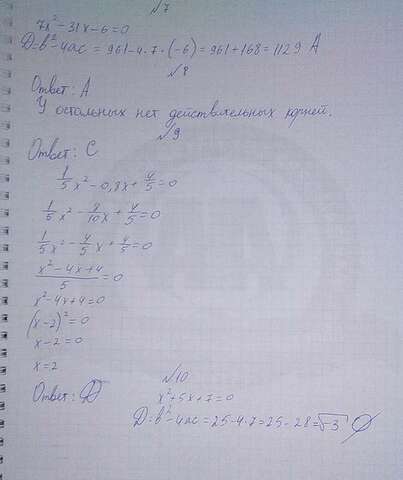 №7
7x² - 31x - 6 = 0
D = b² - 4ac = 961 - 4·7·(-6) = 961 + 168 = 1129 A
№8
Ответ: A
У остальных нет действительных корней.
№9
Ответ: C
1/5 x² - 0,8x + 4/5 = 0
1/5 x² - 8/10 x + 4/5 = 0
1/5 x² - 4/5 x + 4/5 = 0
(x² - 4x + 4)/5 = 0
x² - 4x + 4 = 0
(x - 2)² = 0
x - 2 = 0
x = 2
Ответ: D
№10
x² + 5x + 7 = 0
D = b² - 4ac = 25 - 4·7 = 25 - 28 = √-3 ∅